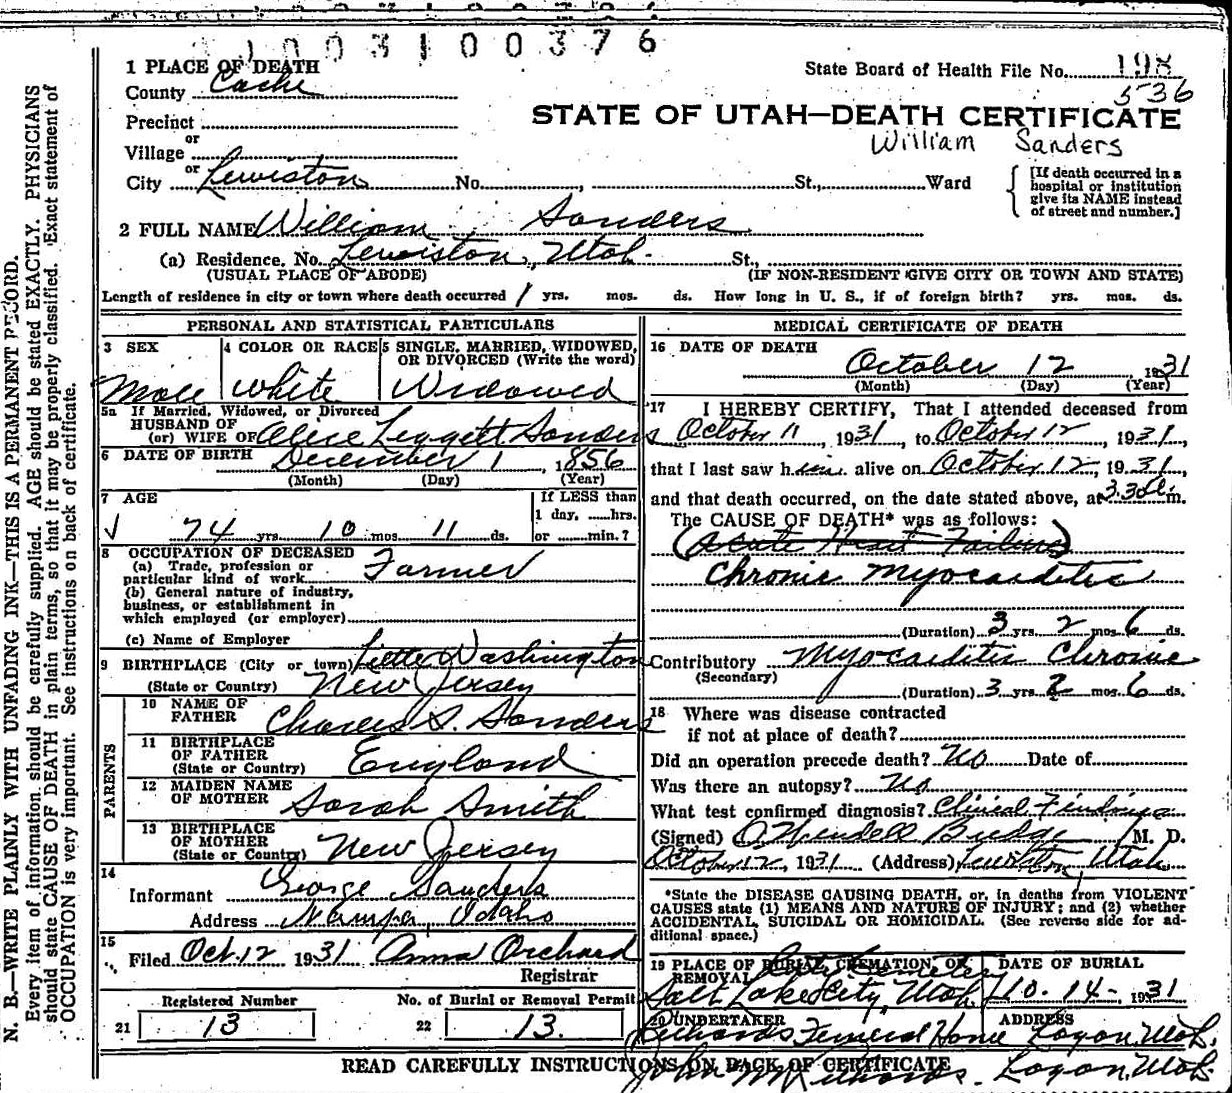 1003100376
1 PLACE OF DEATH
State Board of Health File No. 198
County Cache
536
STATE OF UTAH—DEATH CERTIFICATE
Precinct
or
William Sanders
Village
or
City Lewiston No. , St., Ward
[If death occurred in a
hospital or institution
give its NAME instead
of street and number.]
2 FULL NAME William Sanders
(a) Residence. No. Lewiston, Utah. St.,
(USUAL PLACE OF ABODE) (IF NON-RESIDENT GIVE CITY OR TOWN AND STATE)
Length of residence in city or town where death occurred 1 yrs. mos. ds. How long in U. S., if of foreign birth? yrs. mos. ds.
PERSONAL AND STATISTICAL PARTICULARS
3 SEX
Male
4 COLOR OR RACE
White
5 SINGLE, MARRIED, WIDOWED,
OR DIVORCED (Write the word)
Widowed
5a If Married, Widowed, or Divorced
HUSBAND OF
(or) WIFE OF Alice Leggett Sanders
6 DATE OF BIRTH December 1, 1856
(Month) (Day) (Year)
7 AGE
74 yrs. 10 mos. 11 ds.
If LESS than
1 day, ......hrs.
or ......min.?
8 OCCUPATION OF DECEASED
(a) Trade, profession or
particular kind of work Farmer
(b) General nature of industry,
business, or establishment in
which employed (or employer)
(c) Name of Employer
9 BIRTHPLACE (City or town) Little Washington
(State or Country) New Jersey
PARENTS
10 NAME OF
FATHER Charles S. Sanders
11 BIRTHPLACE
OF FATHER
(State or Country) England
12 MAIDEN NAME
OF MOTHER Sarah Smith
13 BIRTHPLACE
OF MOTHER
(State or Country) New Jersey
14
Informant George Sanders
Address Nampa, Idaho
15
Filed Oct. 12 1931 Anna Orchard
Registrar
Registered Number
21 13
No. of Burial or Removal Permit
22 13.
MEDICAL CERTIFICATE OF DEATH
16 DATE OF DEATH
October 12 1931
(Month) (Day) (Year)
17 I HEREBY CERTIFY, That I attended deceased from
October 11, 1931, to October 12, 1931,
that I last saw him alive on October 12, 1931,
and that death occurred, on the date stated above, at 3:30 m.
The CAUSE OF DEATH* was as follows:
(Acute Heart Failure)
Chronic Myocarditis
(Duration) 3 yrs. 2 mos. 6 ds.
Contributory Myocarditis Chronic
(Secondary)
(Duration) 3 yrs. 2 mos. 6 ds.
18 Where was disease contracted
if not at place of death?
Did an operation precede death? No Date of
Was there an autopsy? No
What test confirmed diagnosis? Clinical Findings
(Signed) O. Wendell Budge M. D.
October 12, 1931 (Address) Lewiston, Utah
*State the DISEASE CAUSING DEATH, or, in deaths from VIOLENT
CAUSES state (1) MEANS AND NATURE OF INJURY; and (2) whether
ACCIDENTAL, SUICIDAL OR HOMICIDAL. (See reverse side for ad-
ditional space.)
19 PLACE OF BURIAL, CREMATION, OR
REMOVAL City Cemetery
Salt Lake City, Utah
DATE OF BURIAL
10-14- 1931
20 UNDERTAKER
Richards Funeral Home
ADDRESS
Logan, Utah.
John M Richards. Logan, Utah.
READ CAREFULLY INSTRUCTIONS ON BACK OF CERTIFICATE
N. B.—WRITE PLAINLY WITH UNFADING INK—THIS IS A PERMANENT RECORD.
Every item of information should be carefully supplied. AGE should be stated EXACTLY. PHYSICIANS
should state CAUSE OF DEATH in plain terms, so that it may be properly classified. Exact statement of
OCCUPATION is very important. See instructions on back of certificate.